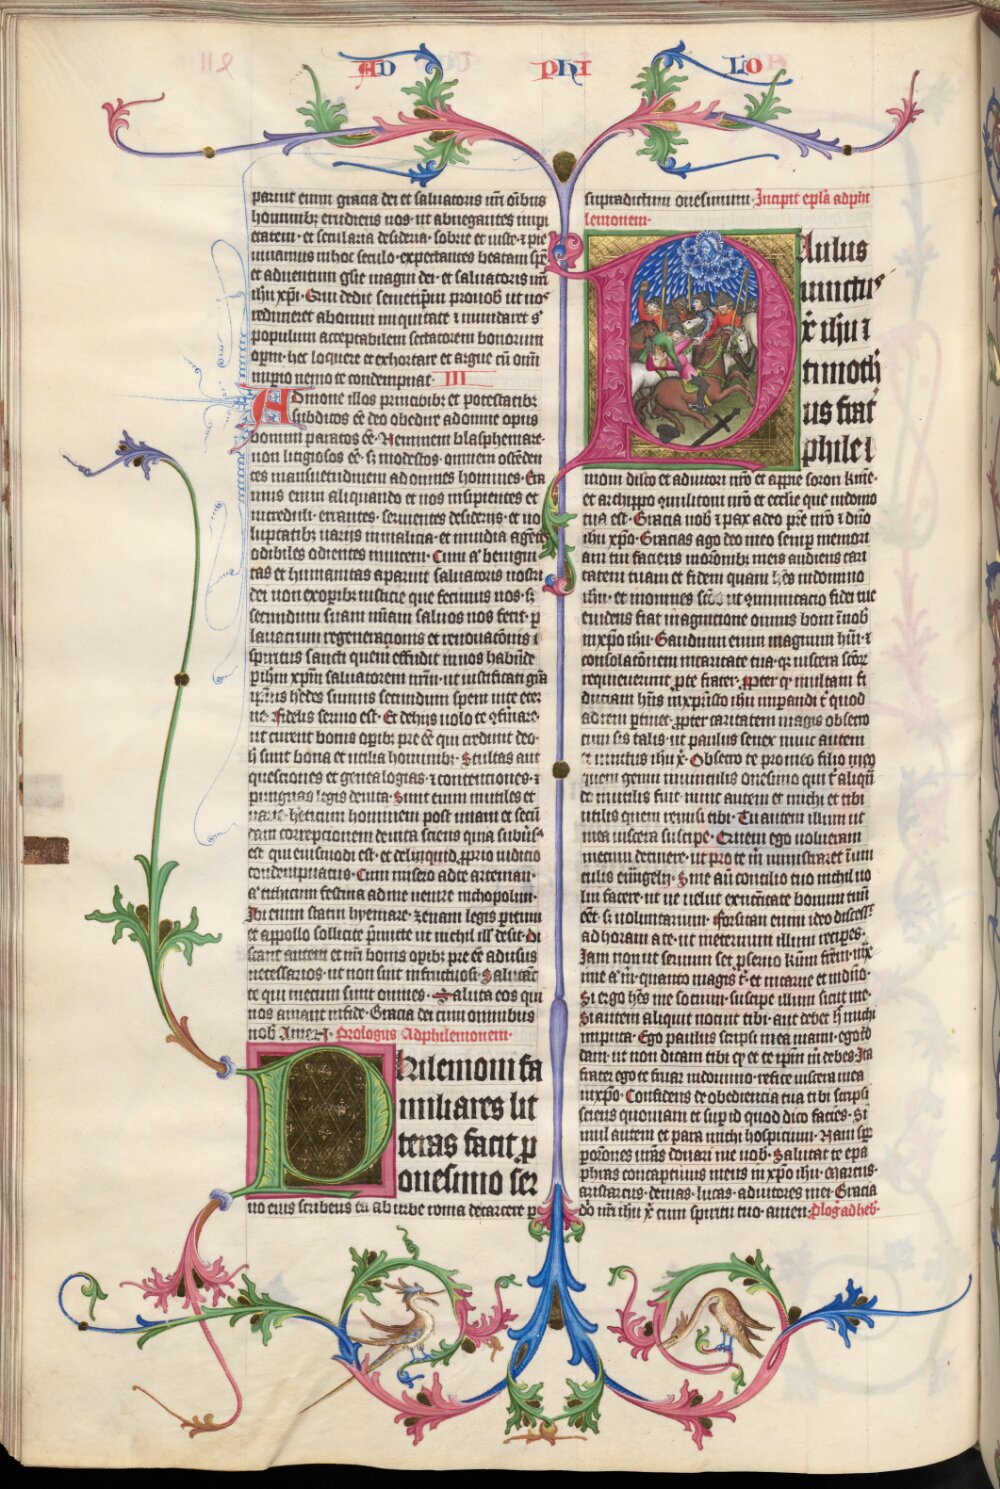 AD phi LO
paruit enim gracia dei et saluatoris nri oibus
hominibz erudiens nos · ut abnegantes impi
etatem · et secularia desideria · sobrie et iuste · ⁊ pie
uiuamus inhoc seculo · expectantes beatam spē
et aduentum glie magni dei · et saluatoris nri
ihu xpi · Qui dedit semetipm pro nob ut nos
redimeret abomni iniquitate ⁊ mundaret s'
populum acceptabilem sectatorem bonorum
opm · hec loquere et exhortare et argue cū omi
imperio nemo te condempnat · III
Admone illos principibz et potestatibz
subditos eē dco obedire adomne opus
bonum paratos eē · Neminem blasphemare ·
non litigiosos eē · sȝ modestos · omnem ostēden
tes mansuetudinem ad omnes homines · Era
mus enim aliquando et nos insipientes et
increduli · errantes · seruientes desiderijs · et uo
luptatibz uarijs in malicia · et inuidia agētes
odibiles odientes inuicem · Cum a' benigni
tas et humanitas aparuit saluatoris nostri
dei non exopibz iusticie que fecimus nos · sȝ
secundum suam miam saluos nos fecit · p
lauacrum regeneracionis et renouacōnis ⁊
spiritus sancti quem effudit in nos habūde
p ihm xpm saluatorem nrm · ut iustificati gra
ipius hēdes simus secundum spem uite eter
ne · Fidelis sermo est · Et dehijs uolo te 9firmare ·
ut curent bonis opibz pre eē qui credunt deo ·
h sunt bona et utilia hominibz · Stultas aut
questiones et genealogias · ⁊ contentiones · ⁊
pungnas legis deuita · Sunt enim inutiles et
uane · hēticum hominem post unam et secū
dam correpcionem deuita sciens quia subūs
est qui eiusmodi est · et delinquid pprio iudicio
condempnatus · Cum misero adte arteman ·
a' tithicum festina ad me uenire nichopolim ·
Ibi enim statui hyemare · zenam legis peritum
et appollo sollicite pmitte ut nichil illi desit · Di
scant autem et nri bonis opibz pre eē adusus
necessarios · ut non sint infructuosi · Salutāt
te qui mecum sunt omnes · Saluta eos qui
nos amant infide · Gracia dei cum omnibus
uob Amen · Prologus Adphilemonem ·
Philemoni fa
miliares lit
teras facit p
onesimo ser
uo eius scribens ei ab urbe roma decarcere p
supradictum onesimum · Incipit epla adphi
lemonem ·
Paulus
uinctus
x̄ ihu ⁊
timothe
us frat
phile ⁊
moni dilco et adiutori nro et appie sorori kme ·
et archippo 9militoni nro et ecclie que indomo
tua est · Gracia uob ⁊ pax adeo pre nro ⁊ dno
ihu xpo · Gracias ago deo meo semp memori
am tui faciens inorōnibz meis audiens cari
tatem tuam et fidem quam hēs indomino
ihu · et inomnes scōs ut 9municacio fidei tue
euidens fiat inagnicione omnis boni inob
inxpo ihu · Gaudium enim magnum hui · ⁊
consolacōnem incaritate tua · qr uiscera scōr
requieuerunt p te frater · Ppter qr multam fi
duciam hūs inxpristo ihu imperandi t' quod
ad rem ptinet · ppter caritatem magis obsecro
cum sis talis · ut paulus senex nunc autem
et uinctus ihu x̄ · Obsecro te pro meo filio meo
quem genui inuinculis onesimo qui t' aliqn
do inutilis fuit · nunc autem et michi et tibi
utilis quem remisi tibi · Tu autem illum ut
mea uiscera suscipe · Quem ego uolueram
mecum detinere · ut pro te m ministraret inuin
culis ewngelij · S me aut concilio tuo nichil uo
lui facere · ut ne uelut exnecitate bonum tuū
eēt · sȝ uoluntarium · Forsitan enim ideo discess
ad horam ate · ut ineternum illum recipes ·
Iam non ut seruum set p seruo kmm frēm · mxe
me a' m · quanto magis t' · et incarne et indno ·
Si ergo hēs me socium · suscipe illum sicut me ·
Si autem aliquit nocuit tibi · aut debet h michi
imputa · Ego paulus scripsi mea manu · ego red
dam · ut non dicam tibi qr et te ipm m debes · Ita
frater ego te fruar indomino · refice uiscera mea
inxpo · Confidens de obediencia tua tibi scripsi
sciens quoniam et sup id quod dico facies · Si
mul autem et para michi hospicium · Nam spo
p orōnes uras donari me uob · Salutat te epa
phras concaptiuus meus in xpo ihu · Marcus ·
aristarcus · demas · lucas · adiutores mei · Gracia
dō nri ihu x̄ cum spiritu tuo · amen · Plog adheb ·